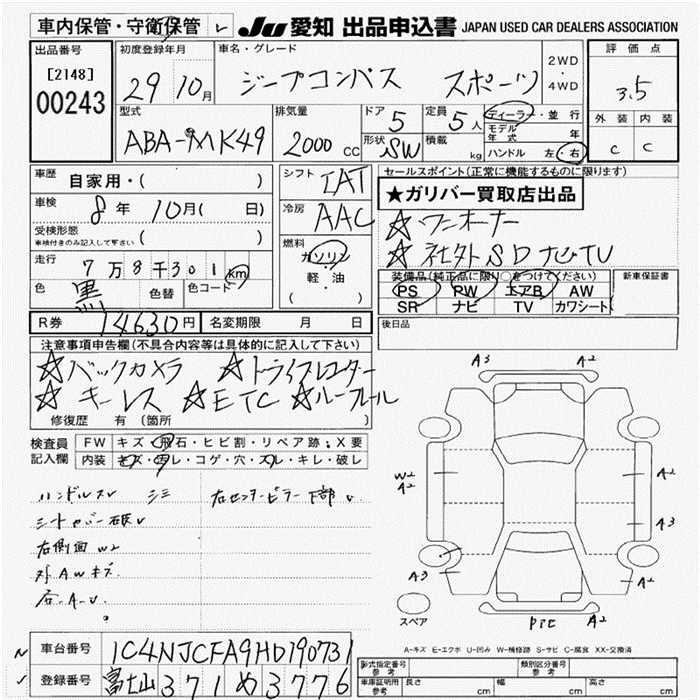 車内保管・守衛保管 レ
JU 愛知 出品申込書 JAPAN USED CAR DEALERS ASSOCIATION
出品番号
[2148]
00243
初度登録年月
29 10月
車名・グレード
ジープコンパス スポーツ
2WD
・
4WD
評価点
3.5
外装 内装
C C
型式
ABA-MK49
排気量
2000 CC
ドア 5
定員 5人
形状 SW
積載 kg
ディーラー・並行
モデル年式 年
ハンドル 左・右
車歴 自家用・( )
車検 8年 10月( 日)
受検形態
車検付きのみ記入して下さい ( )
走行 7万8千301km
色 黒 色替 色コード
シフト IAT
冷房 AAC
燃料
ガソリン
軽・油
( ・ )
セールスポイント(正常に機能するものに限ります)
★ガリバー買取店出品
☆ワンオーナー
☆社外SDナビTV
装備品(純正品に限り○をつけてください) 新車保証書
PS PW エアB AW
SR ナビ TV カワシート
R券 14630円 名変期限 月 日
後日品
注意事項申告欄(不具合内容等は具体的に記入して下さい)
☆バックカメラ ☆ドライブレコーダー
☆キーレス ☆ETC ☆ルーフレール
修復歴 有 (箇所 )
検査員
記入欄
FW キズ・飛石・ヒビ割・リペア跡;X要
内装 キズ・汚レ・コゲ・穴・スレ・キレ・破レ
ハンドルスレ シミ 右センターピラー下部レ
シートカバー
右側面 W2
AWキズ
A3 A2
W2
A2
A3
A3 A2
スペア
A-キズ E-エクボ U-凹み W-補修跡 S-サビ C-腐食 XX-交換済
車台番号 1C4NJCFA9HD190731
登録番号 富士山 371 め 3776
形式指定番号 参考
類別区分番号 参考
車庫証明用 参考 長さ cm 幅 cm 高さ cm